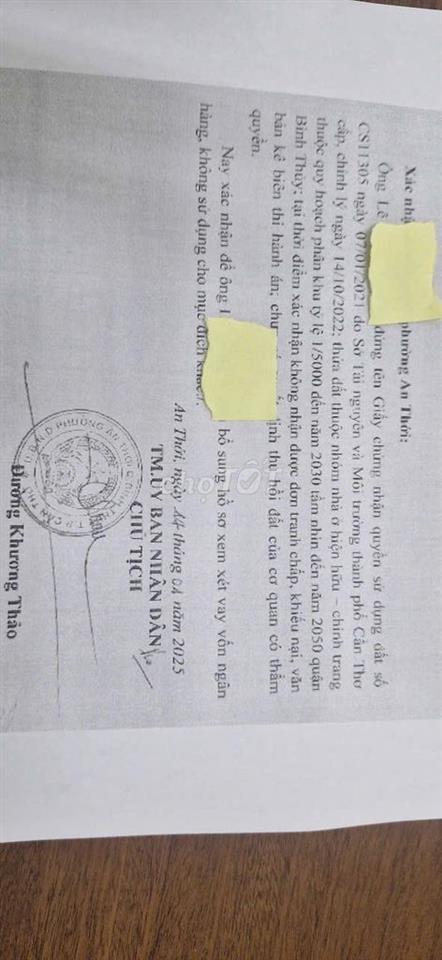 Xác nhậ phường An Thới:
Ông Lê đứng tên Giấy chứng nhận quyền sử dụng đất số
CS11305 ngày 07/01/2021 do Sở Tài nguyên và Môi trường thành phố Cần Thơ
cấp, chỉnh lý ngày 14/10/2022; thửa đất thuộc nhóm nhà ở hiện hữu – chỉnh trang
thuộc quy hoạch phân khu tỷ lệ 1/5000 đến năm 2030 tầm nhìn đến năm 2050 quận
Bình Thủy; tại thời điểm xác nhận không nhận được đơn tranh chấp, khiếu nại, văn
bản kê biên thi hành án; chư ịnh thu hồi đất của cơ quan có thẩm
quyền.
Nay xác nhận để ông bổ sung hồ sơ xem xét vay vốn ngân
hàng, không sử dụng cho mục đích khác.
An Thới, ngày 14 tháng 01 năm 2025
TM.ỦY BAN NHÂN DÂN
CHỦ TỊCH
U.B.N.D PHƯỜNG AN THỚI
Dương Khương Thảo